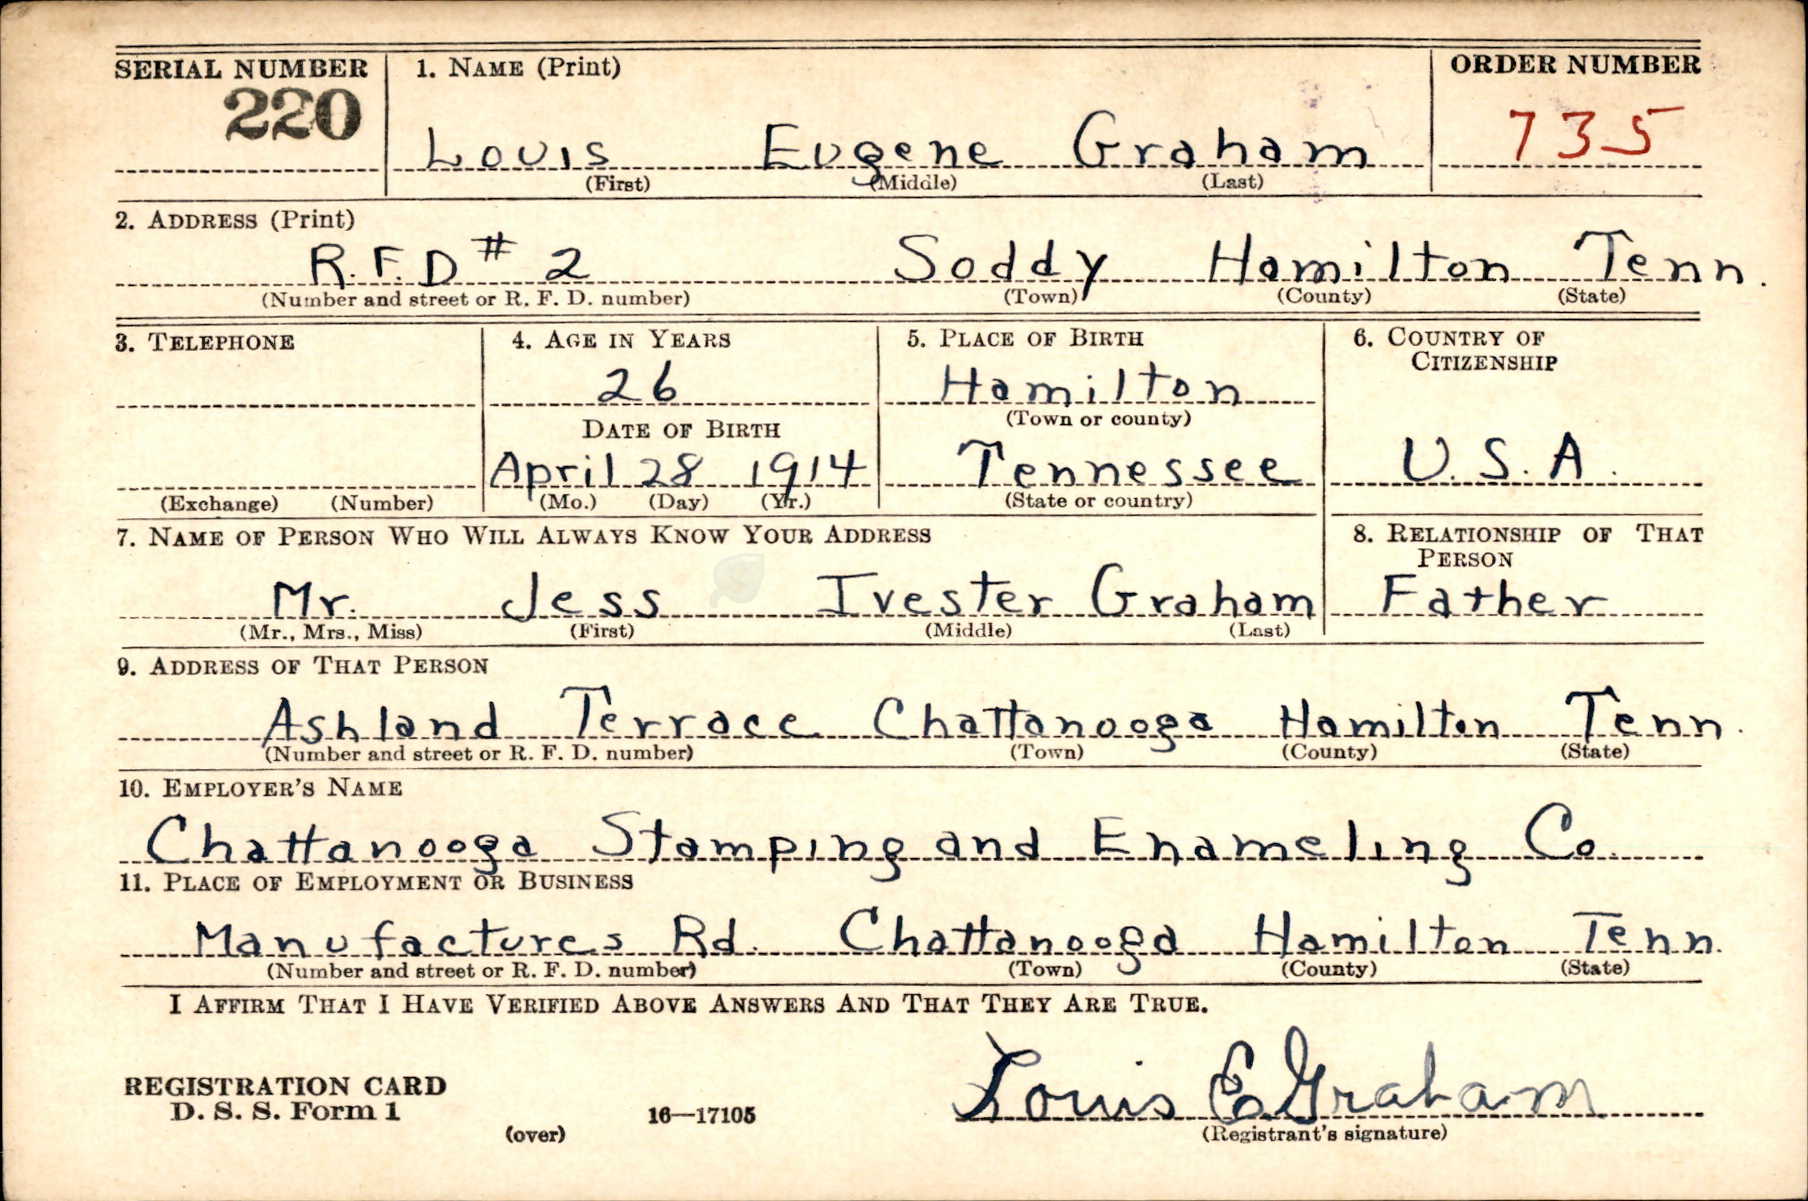 SERIAL NUMBER 1. NAME (Print) ORDER NUMBER
220 Louis Eugene Graham 735
(First) (Middle) (Last)
2. ADDRESS (Print)
R.F.D # 2 Soddy Hamilton Tenn.
(Number and street or R. F. D. number) (Town) (County) (State)
3. TELEPHONE 4. AGE IN YEARS 5. PLACE OF BIRTH 6. COUNTRY OF CITIZENSHIP
26 Hamilton
DATE OF BIRTH (Town or county)
April 28 1914 Tennessee U.S.A.
(Exchange) (Number) (Mo.) (Day) (Yr.) (State or country)
7. NAME OF PERSON WHO WILL ALWAYS KNOW YOUR ADDRESS 8. RELATIONSHIP OF THAT PERSON
Mr. Jess Ivester Graham Father
(Mr., Mrs., Miss) (First) (Middle) (Last)
9. ADDRESS OF THAT PERSON
Ashland Terrace Chattanooga Hamilton Tenn.
(Number and street or R. F. D. number) (Town) (County) (State)
10. EMPLOYER'S NAME
Chattanooga Stamping and Enameling Co.
11. PLACE OF EMPLOYMENT OR BUSINESS
Manufactures Rd. Chattanooga Hamilton Tenn.
(Number and street or R. F. D. number) (Town) (County) (State)
I AFFIRM THAT I HAVE VERIFIED ABOVE ANSWERS AND THAT THEY ARE TRUE.
REGISTRATION CARD
D. S. S. Form 1 16—17105 Louis E Graham
(over) (Registrant's signature)